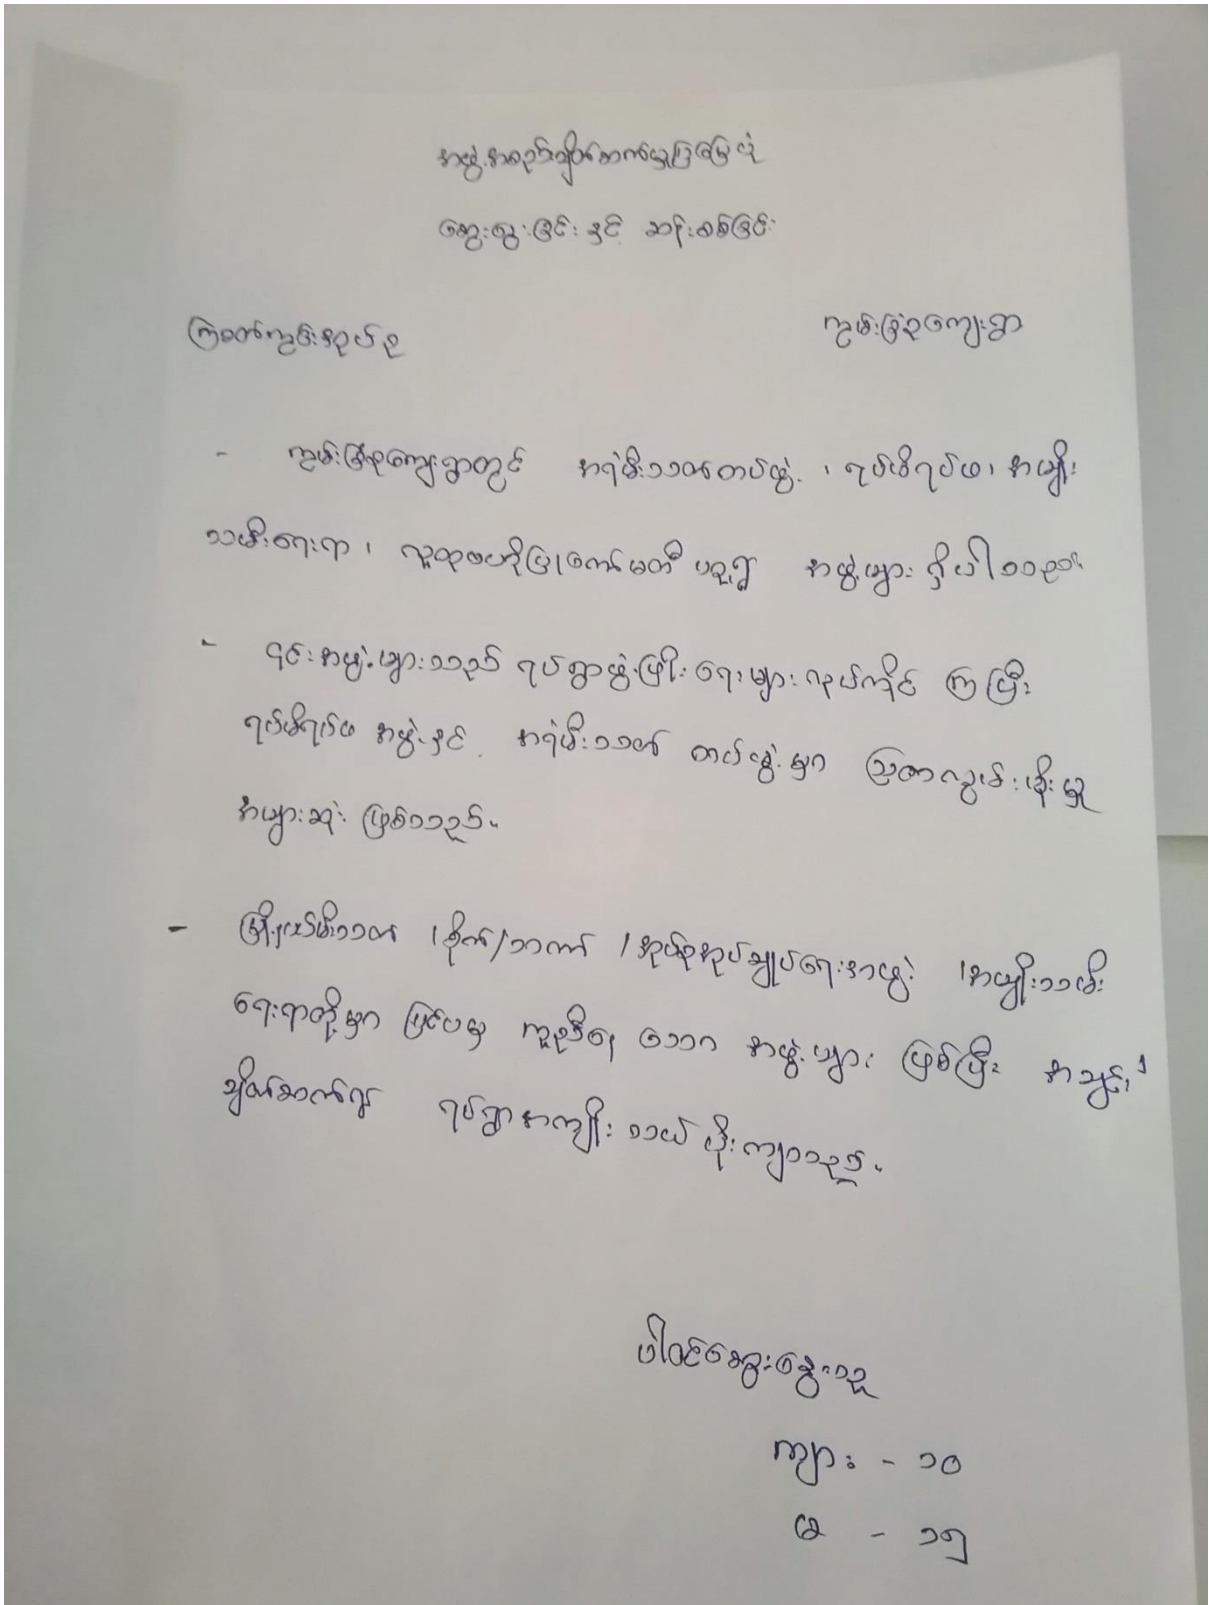 အဖွဲ့အစည်းချိတ်ဆက်မှုပြမြေပုံ
ဆွေးနွေးခြင်းနှင့် ဆန်းစစ်ခြင်း
ကြခတ်ကွင်းအုပ်စု ကွမ်းခြံစုကျေးရွာ
- ကွမ်းခြံစုကျေးရွာတွင် အရံမီးသတ်တပ်ဖွဲ့၊ ရပ်မိရပ်ဖ၊ အမျိုး
သမီးရေးရာ၊ လူထုဗဟိုပြုကော်မတီ ပညာ့ရွှေ အဖွဲ့များ ရှိပါသည်။
- ၎င်းအဖွဲ့များသည် ရပ်ရွာဖွံ့ဖြိုးရေးများလုပ်ကိုင် ကြပြီး
ရပ်မိရပ်ဖ အဖွဲ့နှင့် အရံမီးသတ် တပ်ဖွဲ့မှာ သြဇာလွှမ်းမိုးမှု
အများဆုံး ဖြစ်သည်။
- မြို့နယ်မီးသတ် ၊စိုက်/သက် ၊အုပ်စုအုပ်ချုပ်ရေးအဖွဲ့ ၊အမျိုးသမီး
ရေးရာတို့မှာ ပြင်ပမှ ကူညီနေ သော အဖွဲ့များ ဖြစ်ပြီး အချင်းချင်း
ချိတ်ဆက်လျှင် ရပ်ရွာအကျိုး သယ်ပိုးကြသည်။
ပါဝင်ဆွေးနွေးသူ
ကျား - ၁၀
မ - ၁၅